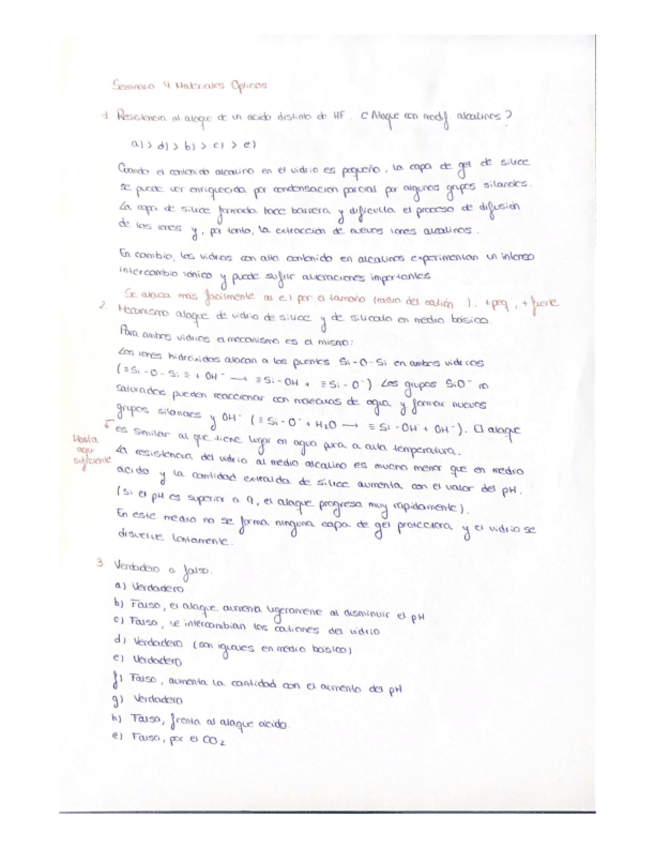 Seminario 4 Materiales Ópticos
1 Resistencia al ataque de un acido distinto de HF. ¿Ataque con modif alcalinos?
a) > d) > b) > c) > e)
Cuando el contenido alcalino en el vidrio es pequeño, la capa de gel de sílice
se puede ver enriquecida por condensación parcial por algunos grupos silanoles.
La capa de sílice formada hace barrera y dificulta el proceso de difusión
de los iones y, por tanto, la extracción de nuevos iones alcalinos.
En cambio, los vidrios con alto contenido en alcalinos experimentan un intenso
intercambio iónico y puede sufrir alteraciones importantes
Se ataca más facilmente al e) por el tamaño (radio del catión). + peq, + fuerte
2. Mecanismo ataque de vidrio de sílice y de silicato en medio básico.
Para ambos vidrios el mecanismo es el mismo:
Los iones hidróxidos atacan a los puentes Si-O-Si en ambos vidrios
(≡Si-O-Si≡ + OH⁻ → ≡Si-OH + ≡Si-O⁻) Los grupos SiO⁻ no
saturados pueden reaccionar con moléculas de agua y formar nuevos
grupos silanoles y OH⁻ (≡Si-O⁻ + H₂O → ≡Si-OH + OH⁻). El ataque
es similar al que tiene lugar en agua pura a alta temperatura.
Hasta
aquí
suficiente
La resistencia del vidrio al medio alcalino es mucho menor que en medio
acido y la cantidad extraída de sílice aumenta con el valor del pH.
(si el pH es superior a 9, el ataque progresa muy rápidamente).
En este medio no se forma ninguna capa de gel protectora y el vidrio se
disuelve lentamente.
3 Verdadero o falso.
a) Verdadero
b) Falso, el ataque aumenta ligeramente al disminuir el pH
c) Falso, se intercambian los cationes del vidrio
d) Verdadero (son iguales en medio básico)
e) Verdadero
f) Falso, aumenta la cantidad con el aumento del pH
g) Verdadero
h) Falso, frente al ataque acido.
e) Falso, por el CO₂